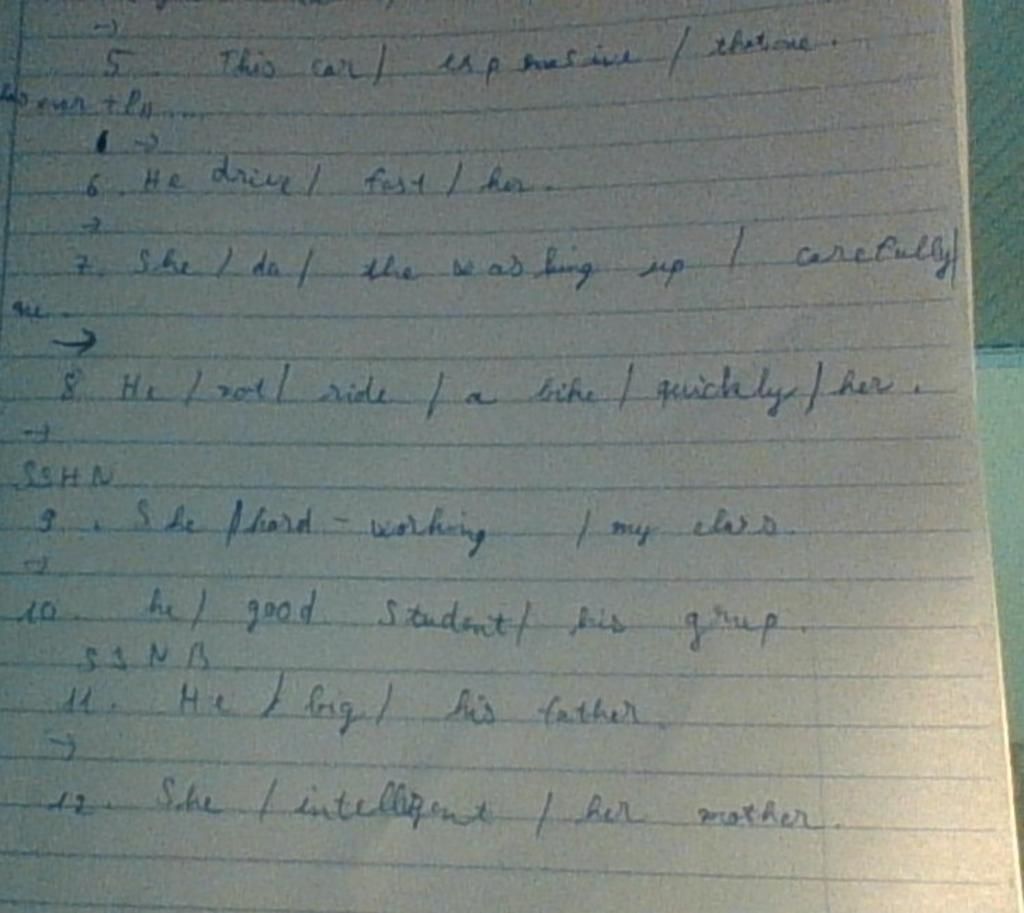 →
5 This car / expensive / that one.
→
6. He drive / fast / her.
→
7. She / do / the washing up / carefully /
me.
→
8 He / not / ride / a bike / quickly / her.
→
SSHN
9. She / hard-working / my class
→
10. he / good student / his group.
SSNB
11. He / big / his father.
→
12. She / intelligent / her mother.